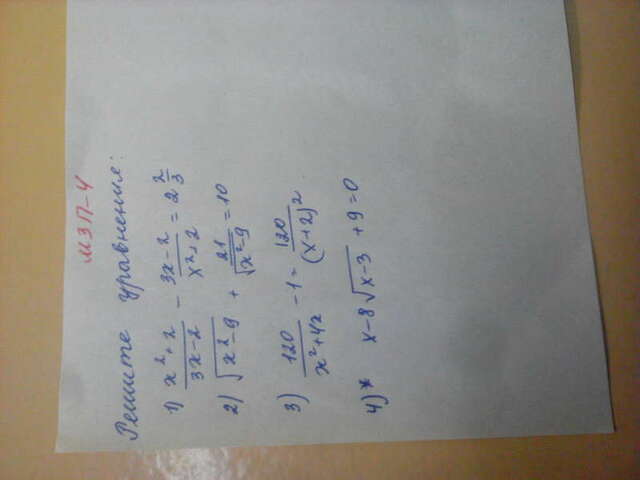 МЗП-4
Решите уравнения:
1) \frac{x^2+2}{3x-2} - \frac{3x-2}{x^2+2} = 2\frac{2}{3}
2) \sqrt{x^2-9} + \frac{21}{\sqrt{x^2-9}} = 10
3) \frac{120}{x^2+4x} - 1 = \frac{120}{(x+2)^2}
4)* x-8\sqrt{x-3}+9=0